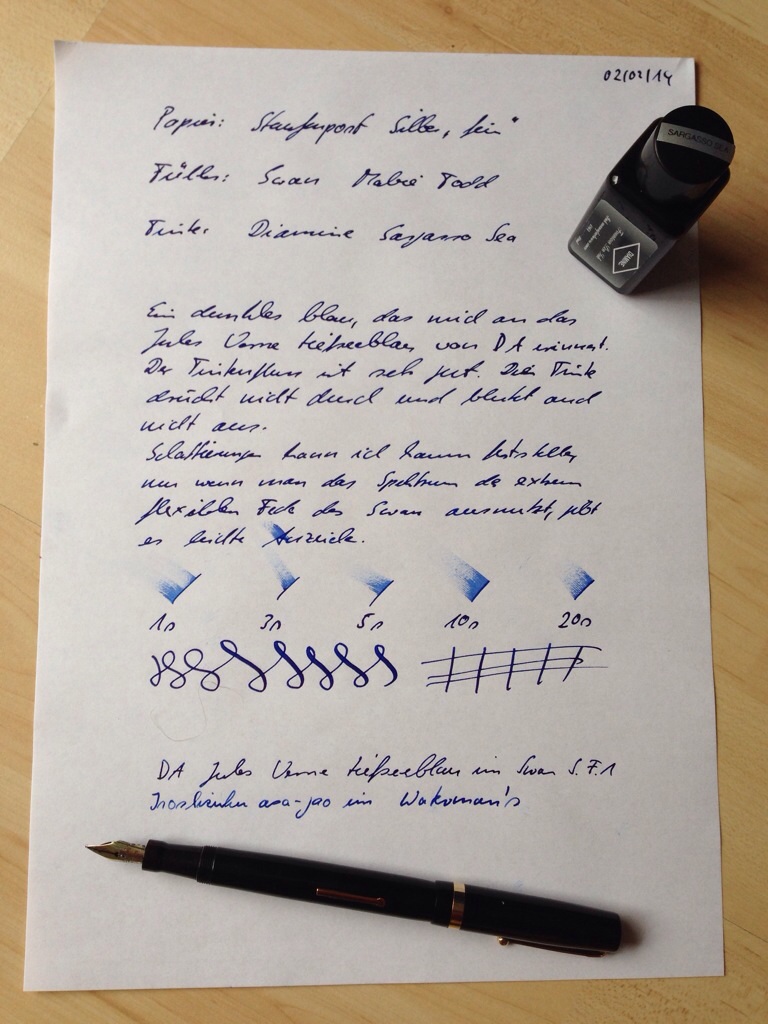 02/02/14
Papier: Staufenpost Silber „fein“
Füller: Swan Mabie Todd
Tinte: Diamine Sargasso Sea
SARGASSO SEA
Ein dunkles blau, das mich an das
Jules Verne tiefseeblau von DA erinnert.
Der Tintenfluss ist sehr gut. Die Tinte
drückt nicht durch und blutet auch
nicht aus.
Schattierungen kann ich kaum feststellen
nur wenn man das Spektrum der extrem
flexiblen Feder des Swan ausnutzt, gibt
es leichte Anzeichen.
1s 3s 5s 10s 20s
DA Jules Verne tiefseeblau im Swan S.F.1
Iroshizuku asa-gao im